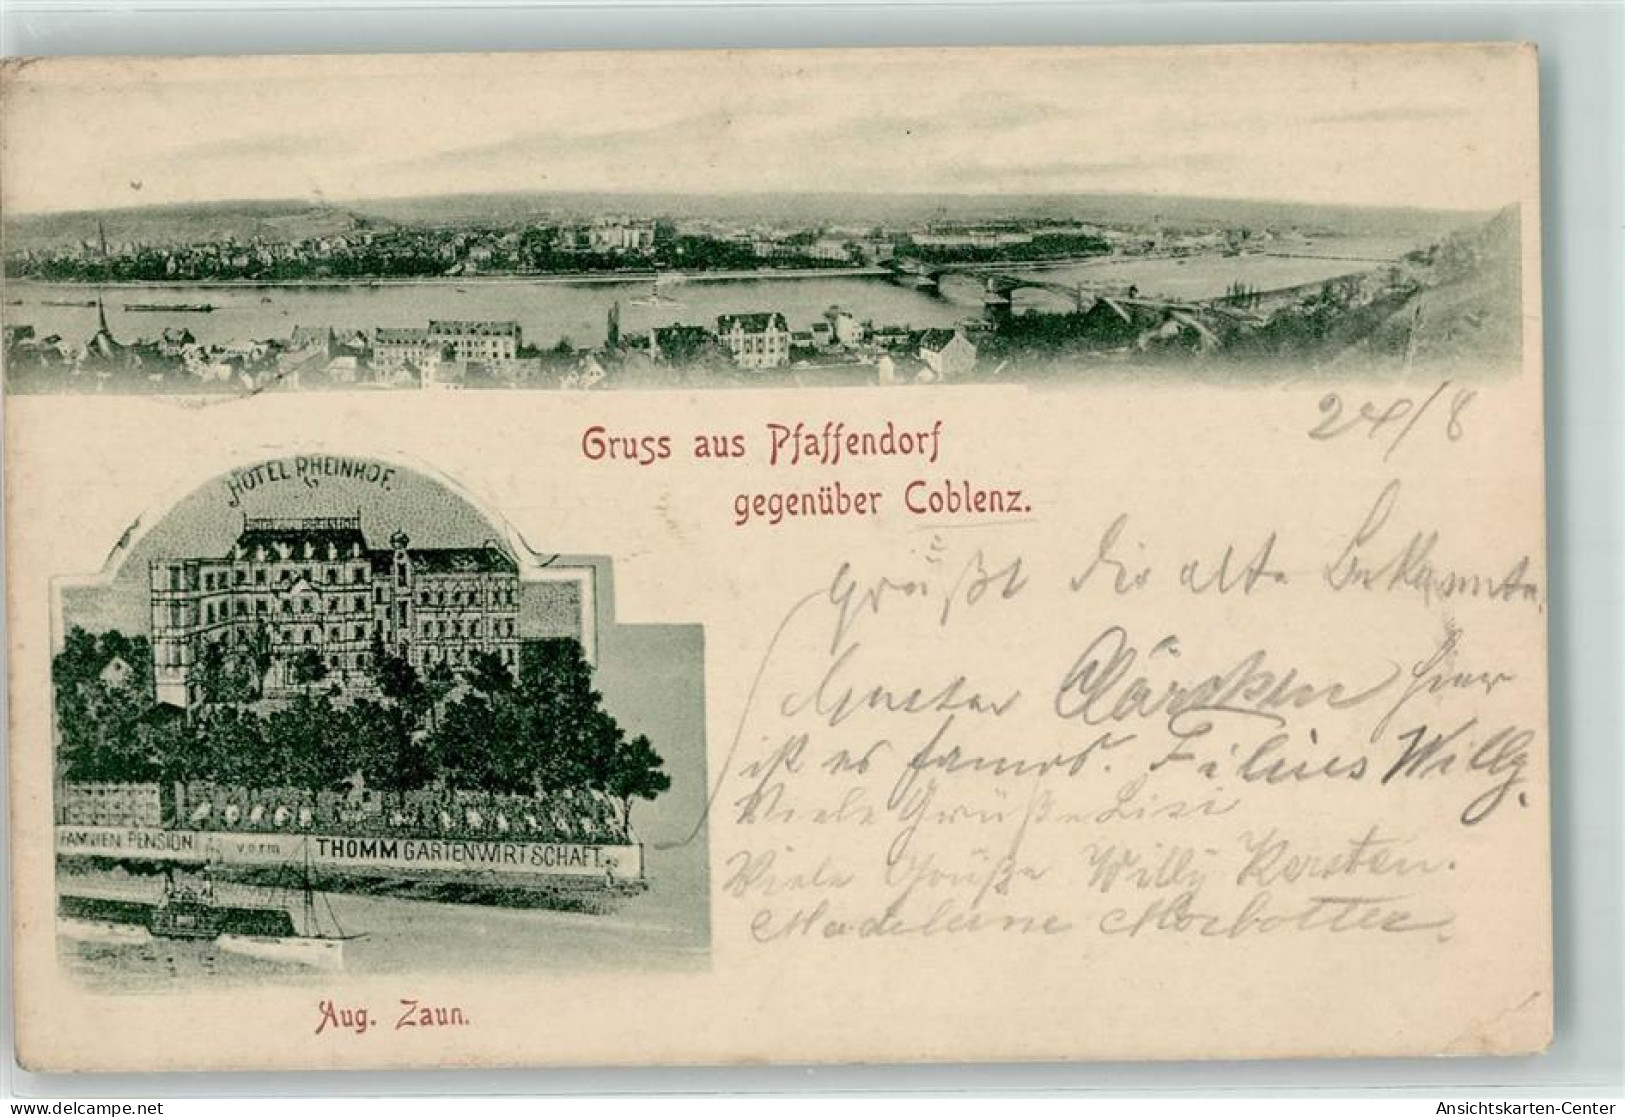 Gruss aus Pfaffendorf
gegenüber Coblenz.
24/8
HOTEL RHEINHOF.
Grüßt die alte Bekannte
Clärchen hier
ist es famos. Filius Willy.
Viele Grüße Lisi
Viele Grüße Willy Kersten.
Madeleine
FAMILIEN PENSION vorm THOMM GARTENWIRTSCHAFT.
Aug. Zaun.
Ansichtskarten-Center